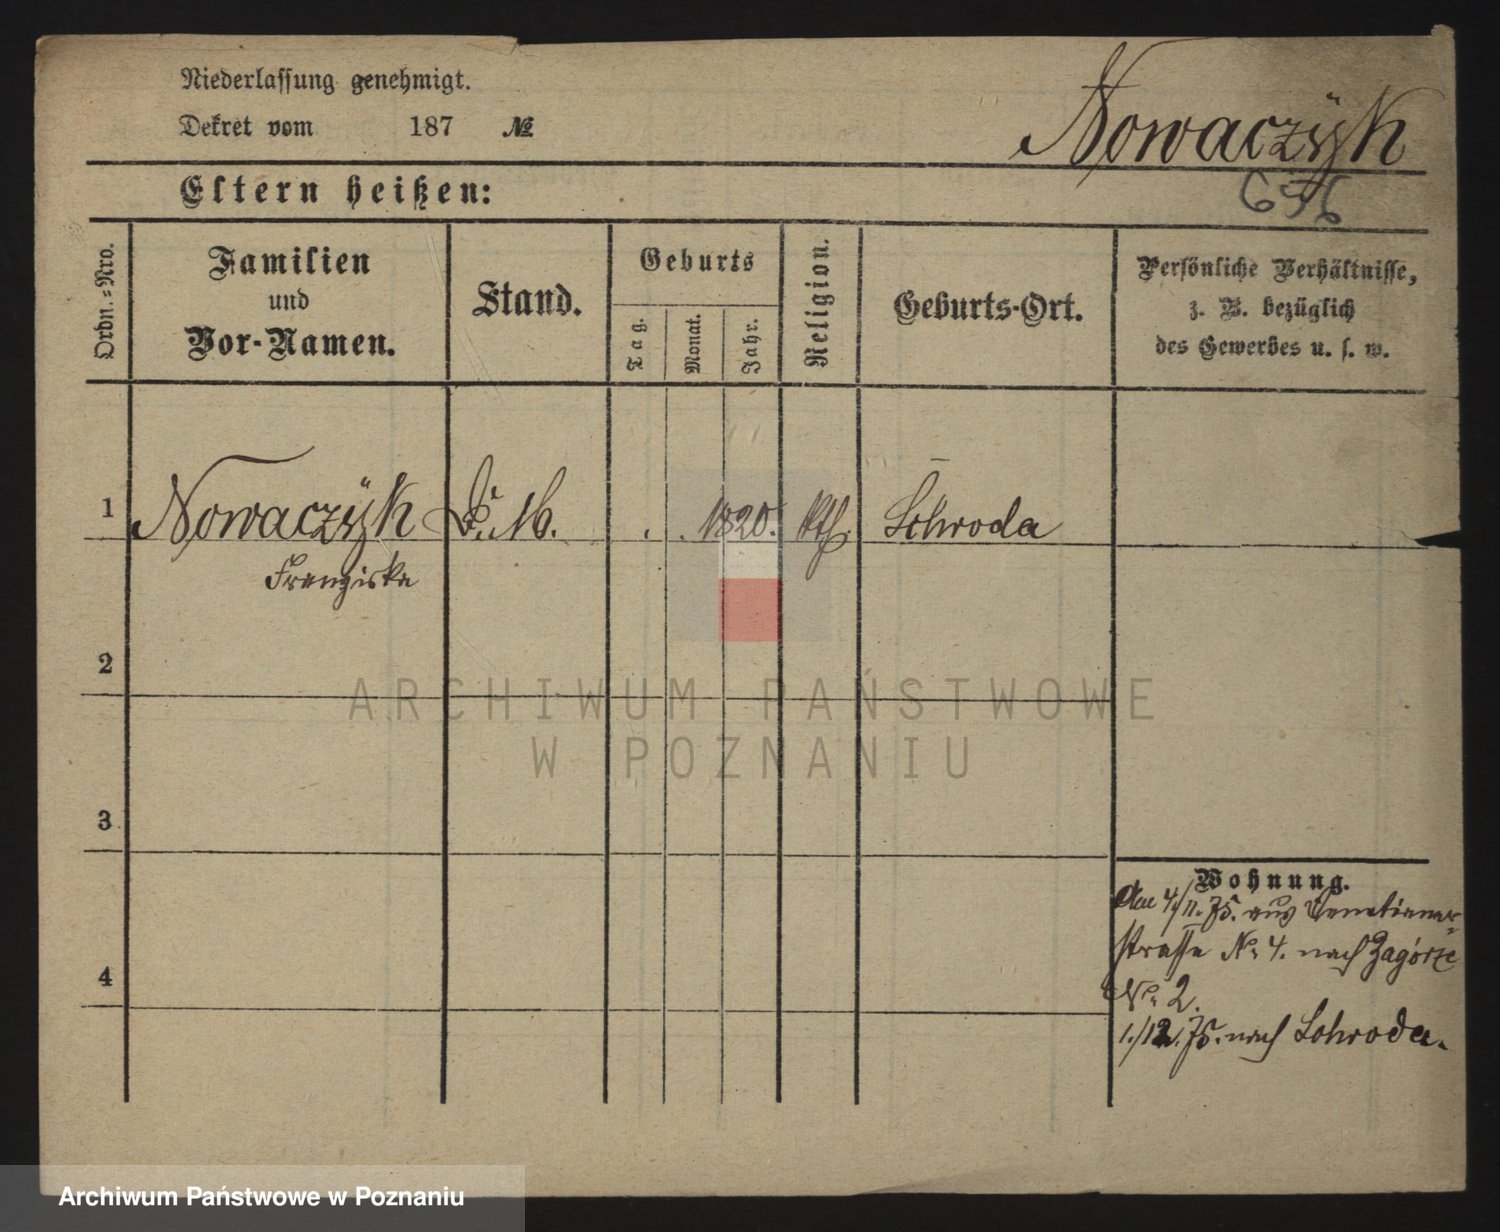 Niederlassung genehmigt.
Dekret vom 187 №
Nowaczÿk
Eltern heißen:
Ordn.-Nro.
Familien
und
Vor-Namen.
Stand.
Geburts
Tag.
Monat.
Jahr.
Religion.
Geburts-Ort.
Persönliche Verhältnisse,
z. B. bezüglich
des Gewerbes u. s. w.
1 Nowaczÿk D. M. . . 1820. kth. Schroda
Franziska
2
3
4
Wohnung.
Den 4/11. 75. aus Venetianer-
strasse No 4. nach Zagórze
No 2.
1./12. 75. nach Schroda.
ARCHIWUM PAŃSTWOWE
W POZNANIU
Archiwum Państwowe w Poznaniu